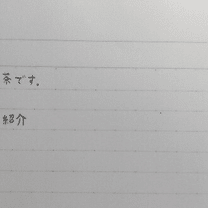 茶です。
紹介